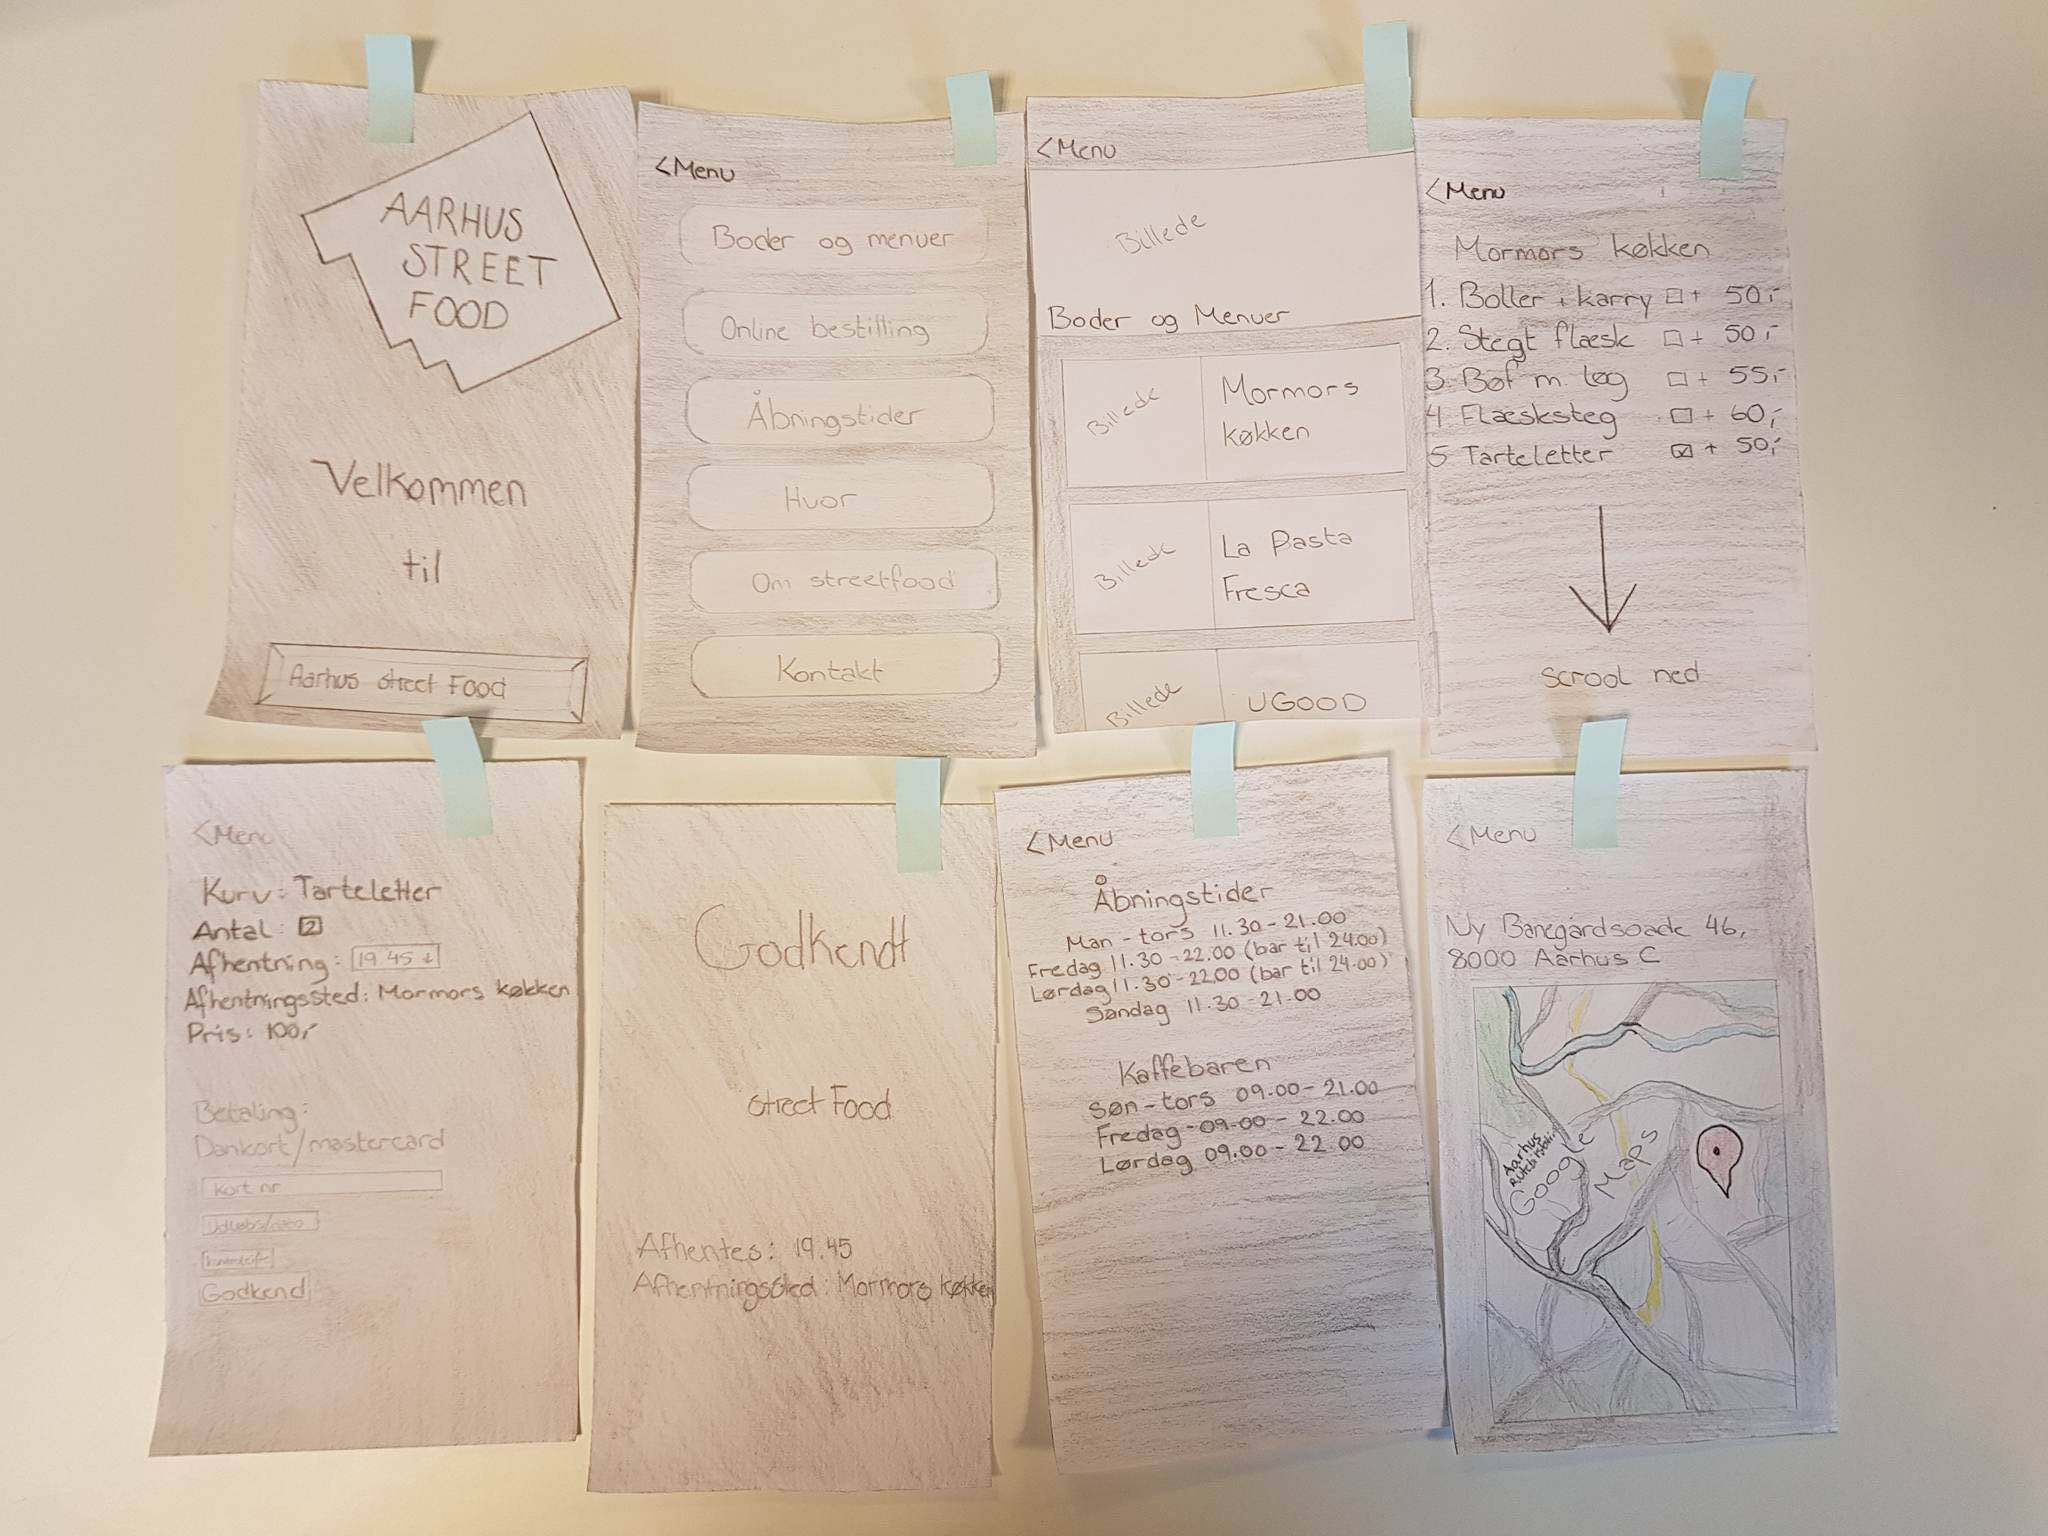 AARHUS
STREET
FOOD
Velkommen
til
Aarhus street Food
<Menu
Boder og menuer
Online bestilling
Åbningstider
Hvor
Om streetfood
Kontakt
<Menu
Billede
Boder og Menuer
Billede
Mormors
køkken
Billede
La Pasta
Fresca
Billede
UGOOD
<Menu
Mormors køkken
1. Boller i karry + 50,-
2. Stegt flæsk + 50,-
3. Bøf m. løg + 55,-
4 Flæsksteg + 60,-
5 Tarteletter + 50,-
scrool ned
<Menu
Kurv: Tarteletter
Antal: 2
Afhentning: 19 45 ↓
Afhentningssted: Mormors køkken
Pris: 100,-
Betaling:
Dankort/mastercard
Kort nr
Godkend
Godkendt
street Food
Afhentes: 19.45
Afhentningssted: Mormors køkken
<Menu
Åbningstider
Man - tors 11.30 - 21.00
Fredag 11.30 - 22.00 (bar til 24.00)
Lørdag 11.30 - 22.00 (bar til 24.00)
Søndag 11.30 - 21.00
Kaffebaren
Søn - tors 09.00 - 21.00
Fredag - 09.00 - 22.00
Lørdag 09.00 - 22 00
<Menu
Ny Banegårdsgade 46,
8000 Aarhus C
Aarhus
Google
Maps